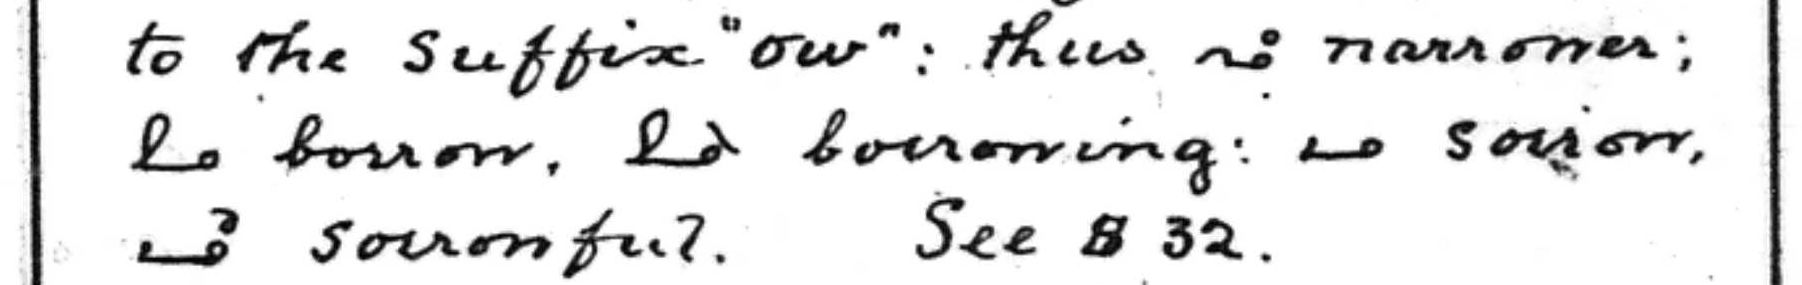 to the suffix "ow": thus narrower;
borrow, borrowing: sorrow,
sorrowful. See § 32.